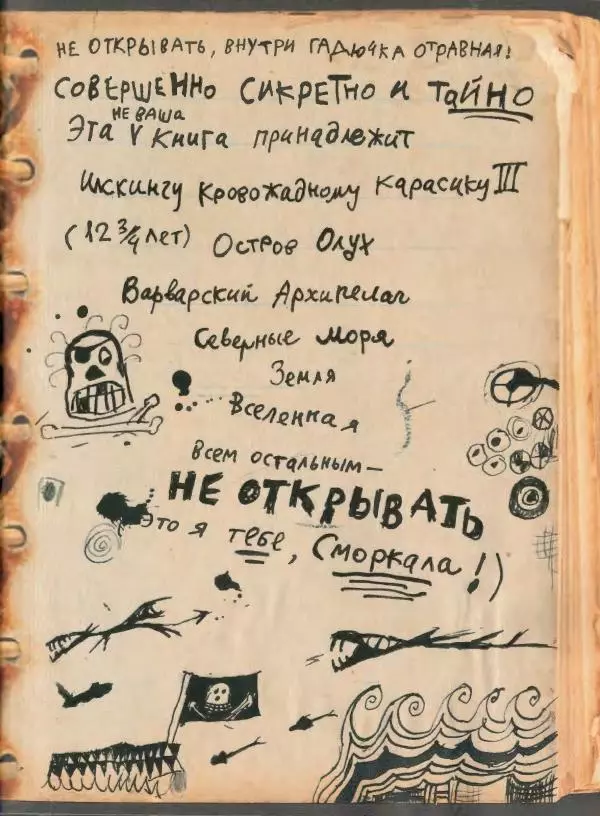 НЕ ОТКРЫВАТЬ, ВНУТРИ ГАДЮЧКА ОТРАВНАЯ!
СОВЕРШЕННО СИКРЕТНО И ТАЙНО
НЕ ВАША
Эта V Книга принадлежит
Икскингу Кровожадному Карасику III
(12 3/4 лет) Остров Олух
Варварский Архипелаг
Северные Моря
Земля
Вселенная
Всем остальным—
НЕ ОТКРЫВАТЬ
Это я тебе, Сморкала!)